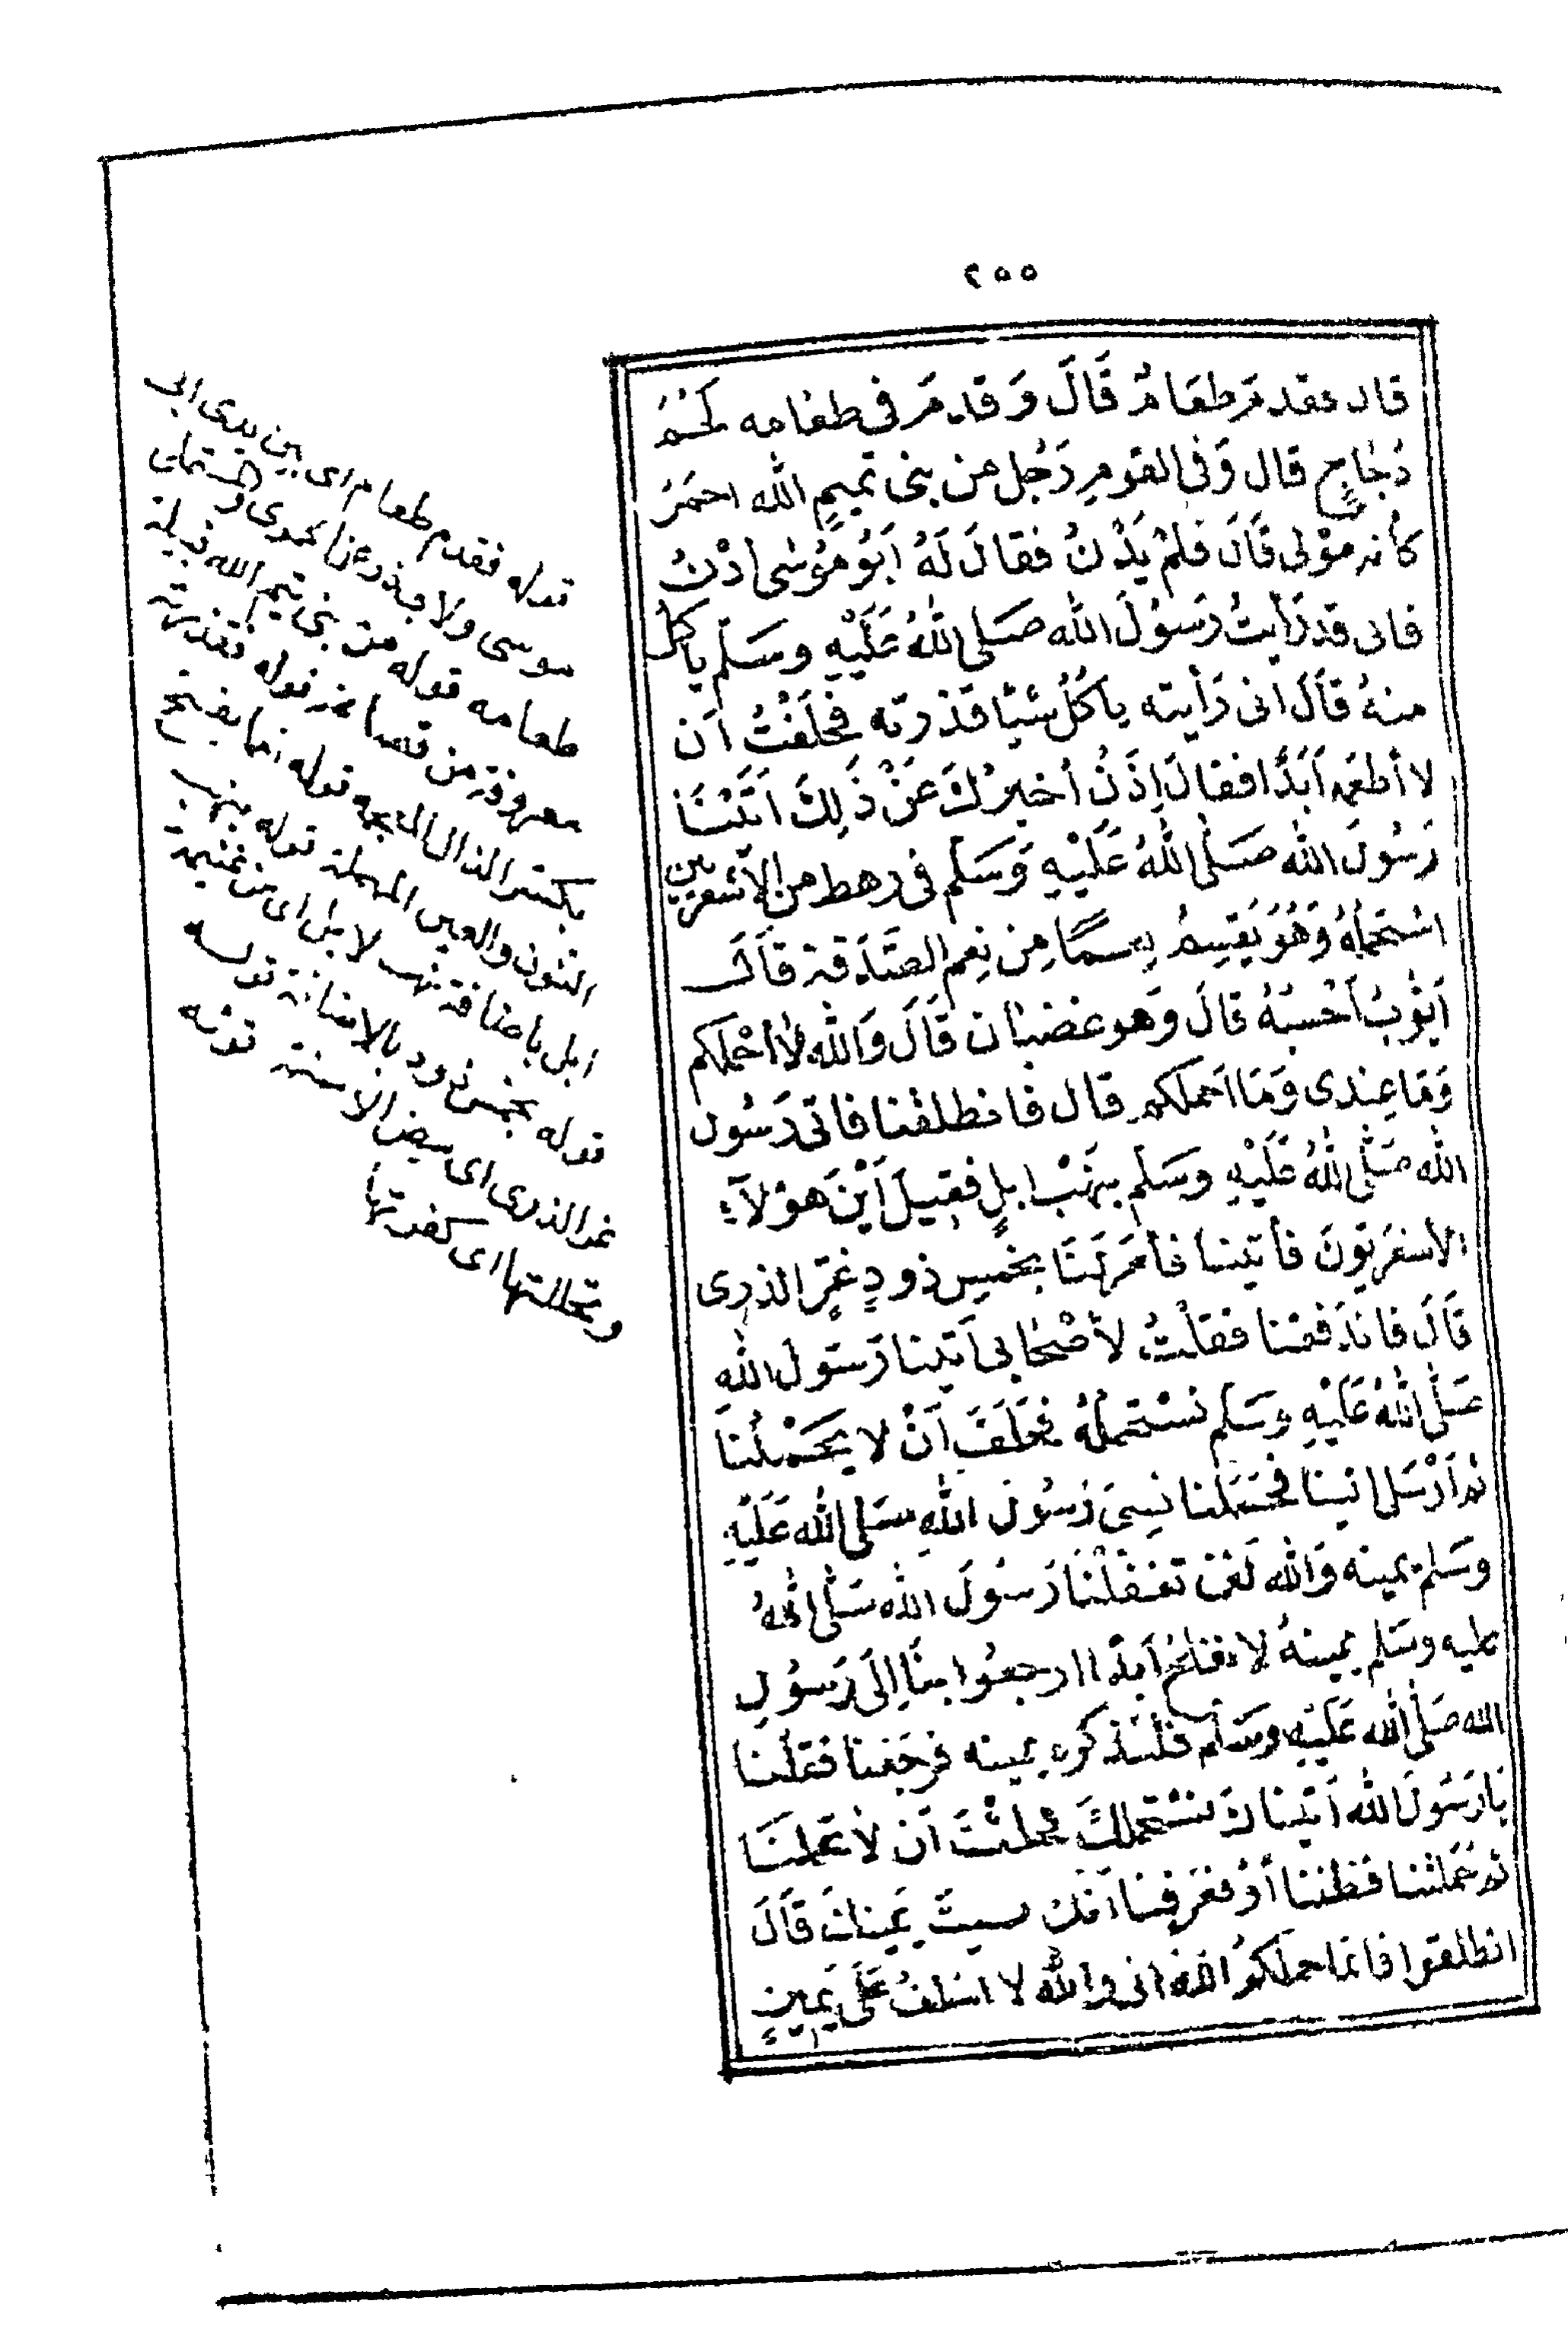 ٢٥٥
قال فقدم طعامٌ قَالَ وَقدمَ في طعامه لَحْمُ
دُجاجٍ قال وَفى القومِ رَجُل من بنى تميمِ الله احمَرُ
كأنه مَوْلى قَالَ فلمْ يَدْنُ فقالَ لَهُ اَبُو مُوسٰى ادْنُ
فانى قد رَأيتُ رَسُولَ الله صَلى اللهُ عَلَيْهِ وسَلم ياكل
منهُ قَالَ انى رَأيته يأكُلُ شيْئا قذرته فحلَفْتُ اَن
لا أطعَمه اَبَدًا فقالَ اِذَنُ أخبرْكَ عَنْ ذَلِكَ اَتَيْنَا
رَسُولَ الله صَلى اللهُ عَلَيْهِ وَسَلم فى رهط من الاشعريين
اسْتَحملهُ وَهُوَ يَقسِمُ نعمًا مِن نِعم الصَّدَقة قَالَ
اَيّوبُ اَحْسبُهُ قالَ وَهو غضبان قَالَ وَالله لا أحملكم
وَمَا عِندى وَمَا احملكم قال فانطلقنا فاتى رَسُول
الله صَلى اللهُ عَلَيْهِ وسَلم بنهْب ابلٍ فقيلَ اَيْنَ هؤلآءِ
الأشعريّونَ فأتينا فأمَرَ لَنَا بخمسِ ذودٍ غرِّ الذرى
قَالَ فاندَفعنا فقلتُ لأصْحابى اَتينا رَسُولَ اللهِ
صَلى اللهُ عَلَيْهِ وسَلم نسْتحملُهُ فحلَفَ اَنْ لا يَحْملُنا
ثم اَرْسَل الينا فحَمَلنا نَسِىَ رَسُولَ اللهِ صَلى الله عَلَيْهِ
وسَلم يمينه وَالله لَئن تغفلْنَا رَسُولَ الله صَلى اللهُ
عليه وسَلم يمينهُ لا نفلحُ اَبدًا ارجعُوا بنَا اِلَى رَسُولِ
الله صَلى الله عَلَيْهِ وسَلم فلنذكره يمينه فرجَعنا فقلنا
يَا رَسُولَ الله اَتيناكَ نستحملكَ فحلفْتَ اَن لا تحملنَا
ثم حَملتنا فظننا أو فعَرفنا انك نسيتَ يَمينكَ قَالَ
انطلقوا فانما حملكمُ اللهُ انى والله لا احلفُ عَلَى يَمِينٍ
قوله فقدم طعام اى بين يدى ابى
موسى ولابى ذر عن الحموى والمستملى
طعامه قوله من بنى تيم الله قبيلة
معروفة من قضاعة قوله فقذرته
بكسر الذال المعجمه قوله نعما بفتح
النون والعين المهملة قوله بنهب
ابل باضافة نهب لابل اى من غنيمة
قوله بخمس ذود بالاضافة قوله
غر الذرى اى بيض الاسنمة قوله
وتحللتها اى كفرتها